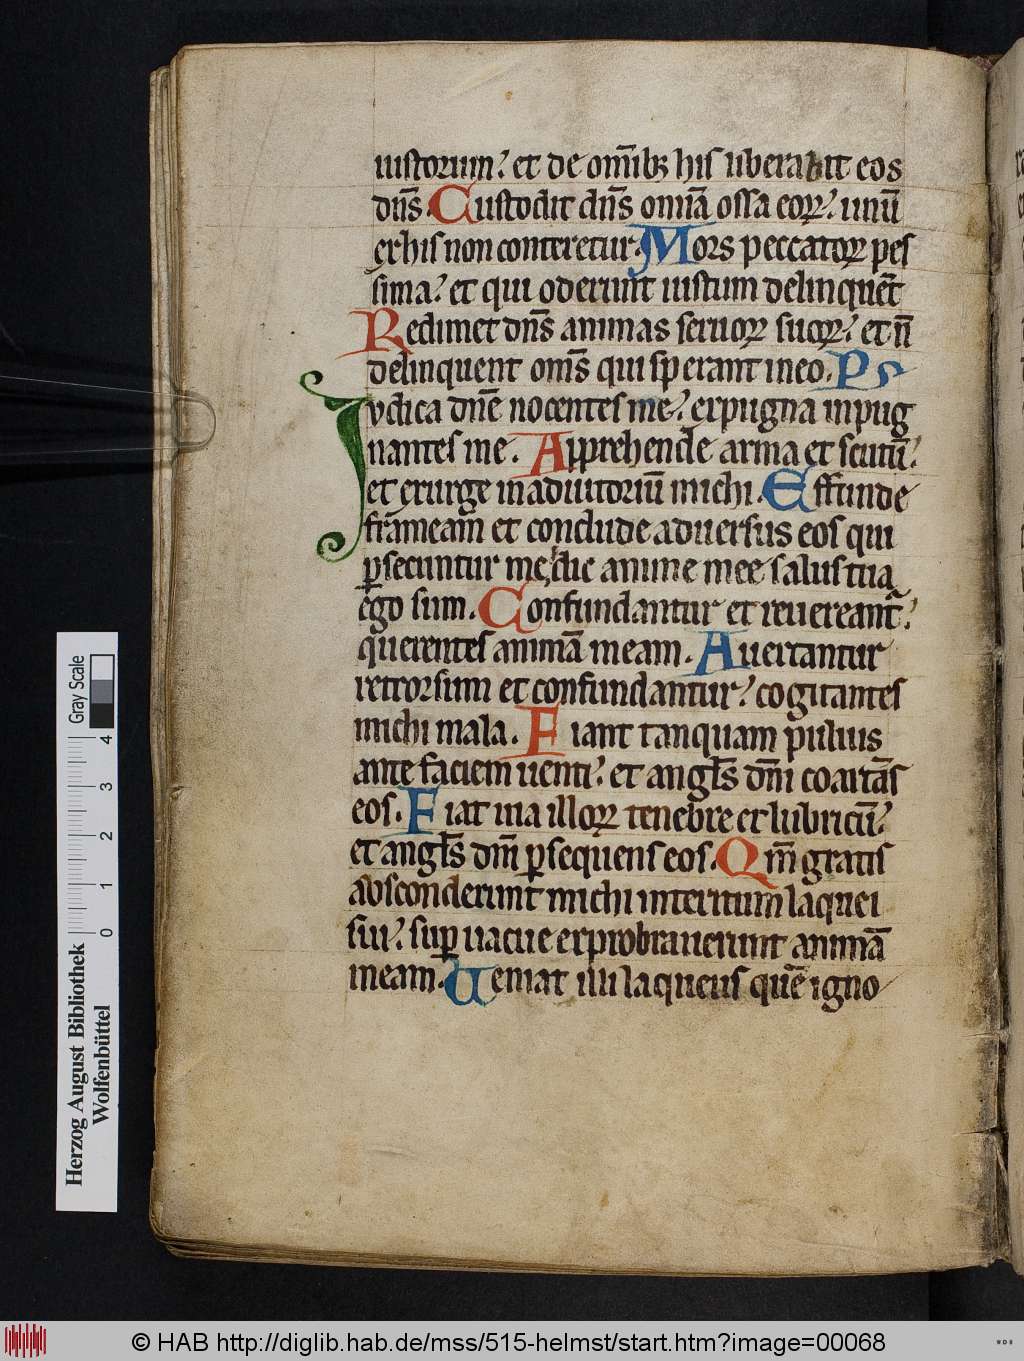 iustorum. et de om̄ibꝫ his liberabit eos
dn̄s. Custodit dn̄s om̄ia ossa eoꝝ. unū
ex his non conteretur. Mors peccatoꝝ pes
sima. et qui oderunt iustum delinquēt
Redimet dn̄s animas seruoꝝ suoꝝ. et n̄
delinquent om̄s qui sperant in eo. Ps
Judica dn̄e nocentes me. expugna inpug
nantes me. Apprehende arma et scutū.
et exurge in adiutoriū michi. Effunde
frameam et conclude aduersus eos qui
ꝑsecuntur me, dic anime mee salus tua
ego sum. Confundantur et reuereant᷑.
querentes animā meam. Auertantur
retrorsum et confundantur. cogitantes
michi mala. Fiant tanquam puluis
ante faciem uenti. et angl̄s dn̄i coartās
eos. Fiat uia illoꝝ tenebre et lubricū.
et angl̄s dn̄i ꝑsequens eos. Qm̄ gratis
absconderunt michi interitum laquei
sui. suꝑ uacue exprobrauerunt animā
meam. Ueniat illi laqueus quē igno
Gray Scale
0 1 2 3 4
Herzog August Bibliothek
Wolfenbüttel
© HAB http://diglib.hab.de/mss/515-helmst/start.htm?image=00068